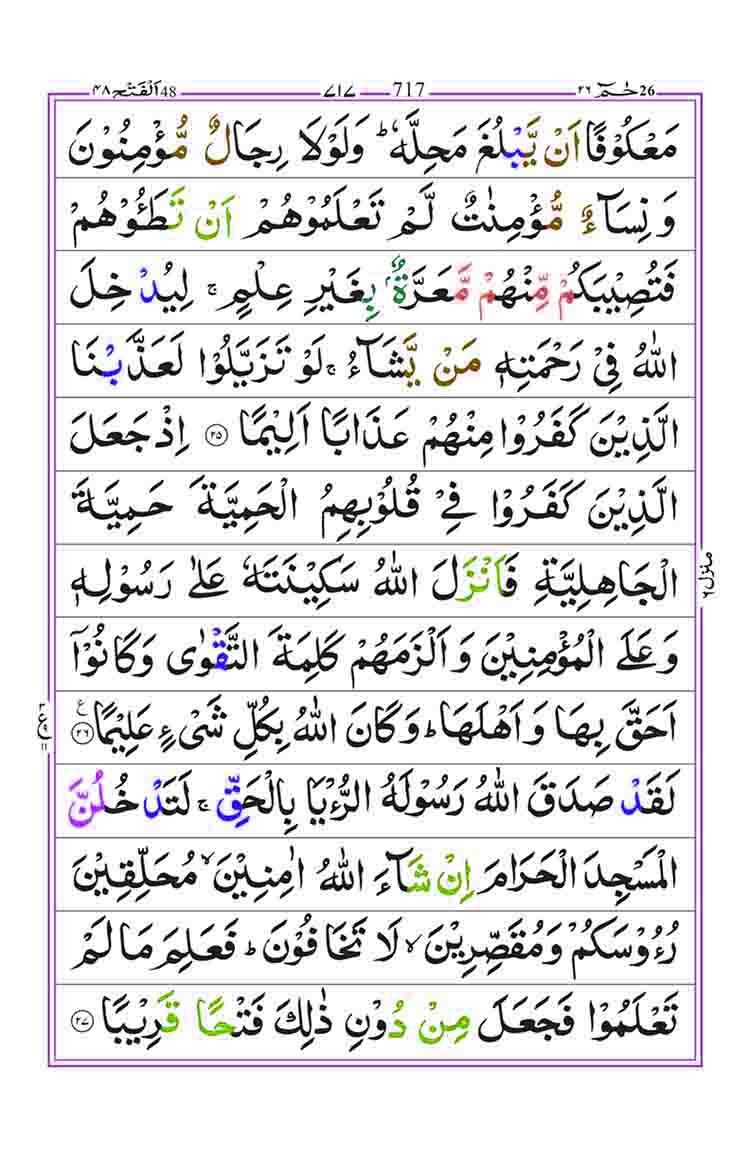 حٰمٓ 26 ٢٦ 717 ٧١٧ اَلْفَتْح 48 ٤٨
مَعْكُوْفًا اَنْ يَّبْلُغَ مَحِلَّهٗ ؕ وَلَوْلَا رِجَالٌ مُّؤْمِنُوْنَ
وَ نِسَآءٌ مُّؤْمِنٰتٌ لَّمْ تَعْلَمُوْهُمْ اَنْ تَطَـُٔوْهُمْ
فَتُصِيْبَكُمْ مِّنْهُمْ مَّعَرَّةٌۢ بِغَيْرِ عِلْمٍ ۚ لِيُدْخِلَ
اللّٰهُ فِيْ رَحْمَتِهٖ مَنْ يَّشَآءُ ۚ لَوْ تَزَيَّلُوْا لَعَذَّبْنَا
الَّذِيْنَ كَفَرُوْا مِنْهُمْ عَذَابًا اَلِيْمًا ۟۲۵ اِذْ جَعَلَ
الَّذِيْنَ كَفَرُوْا فِيْ قُلُوْبِهِمُ الْحَمِيَّةَ حَمِيَّةَ
الْجَاهِلِيَّةِ فَاَنْزَلَ اللّٰهُ سَكِيْنَتَهٗ عَلٰى رَسُوْلِهٖ
منزل ٦
وَ عَلَى الْمُؤْمِنِيْنَ وَ اَلْزَمَهُمْ كَلِمَةَ التَّقْوٰى وَ كَانُوْۤا
اَحَقَّ بِهَا وَ اَهْلَهَا ؕ وَ كَانَ اللّٰهُ بِكُلِّ شَيْءٍ عَلِيْمًا ۟۲۶ ع
لَقَدْ صَدَقَ اللّٰهُ رَسُوْلَهُ الرُّءْيَا بِالْحَقِّ ۚ لَتَدْخُلُنَّ
الْمَسْجِدَ الْحَرَامَ اِنْ شَآءَ اللّٰهُ اٰمِنِيْنَ ۙ مُحَلِّقِيْنَ
رُءُوْسَكُمْ وَ مُقَصِّرِيْنَ ۙ لَا تَخَافُوْنَ ؕ فَعَلِمَ مَا لَمْ
تَعْلَمُوْا فَجَعَلَ مِنْ دُوْنِ ذٰلِكَ فَتْحًا قَرِيْبًا ۟۲۷